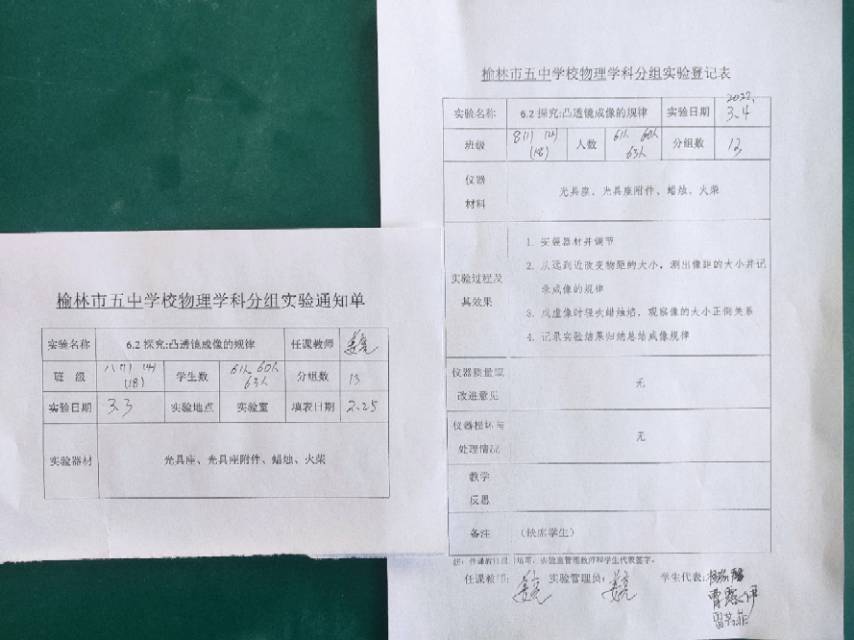 榆林市五中学校物理学科分组实验通知单
实验名称 6.2 探究:凸透镜成像的规律 任课教师
班 级 (14) (18) 学生数 61人 60人 63人 分组数 13
实验日期 3.3 实验地点 实验室 填表日期 2.25
实验器材 光具座、光具座附件、蜡烛、火柴
榆林市五中学校物理学科分组实验登记表
实验名称 6.2 探究:凸透镜成像的规律 实验日期 2022. 3.4
班级 (18) 人数 61人 60人 63人 分组数 13
仪器
材料
光具座、光具座附件、蜡烛、火柴
实验过程及
其效果
1. 安装器材并调节
2. 从远到近改变物距的大小，测出像距的大小并记
录成像的规律
3. 成虚像时 观察像的大小正倒关系
4. 记录实验结果归纳总结成像规律
仪器质量或
改进意见
无
仪器损坏与
处理情况
无
教学
反思
备注 (缺席学生)
注：任课教师 填写，实验室管理教师和学生代表签字。
任课教师: 实验管理员: 学生代表: